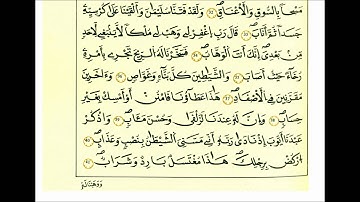 مَسْحًا بِالسُّوقِ وَالْأَعْنَاقِ وَلَقَدْ فَتَنَّا سُلَيْمَٰنَ وَأَلْقَيْنَا عَلَىٰ كُرْسِيِّهِ
جَسَدًا ثُمَّ أَنَابَ قَالَ رَبِّ اغْفِرْ لِي وَهَبْ لِي مُلْكًا لَّا يَنبَغِي لِأَحَدٍ
مِّن بَعْدِي إِنَّكَ أَنتَ الْوَهَّابُ فَسَخَّرْنَا لَهُ الرِّيحَ تَجْرِي بِأَمْرِهِ
رُخَاءً حَيْثُ أَصَابَ وَالشَّيَٰطِينَ كُلَّ بَنَّاءٍ وَغَوَّاصٍ وَءَاخَرِينَ
مُقَرَّنِينَ فِي الْأَصْفَادِ هَٰذَا عَطَاؤُنَا فَامْنُنْ أَوْ أَمْسِكْ بِغَيْرِ
حِسَابٍ وَإِنَّ لَهُ عِندَنَا لَزُلْفَىٰ وَحُسْنَ مَـَٔابٍ وَاذْكُرْ
عَبْدَنَا أَيُّوبَ إِذْ نَادَىٰ رَبَّهُ أَنِّي مَسَّنِيَ الشَّيْطَٰنُ بِنُصْبٍ وَعَذَابٍ
ارْكُضْ بِرِجْلِكَ هَٰذَا مُغْتَسَلٌ بَارِدٌ وَشَرَابٌ
وَوَهَبْنَا لَهُ